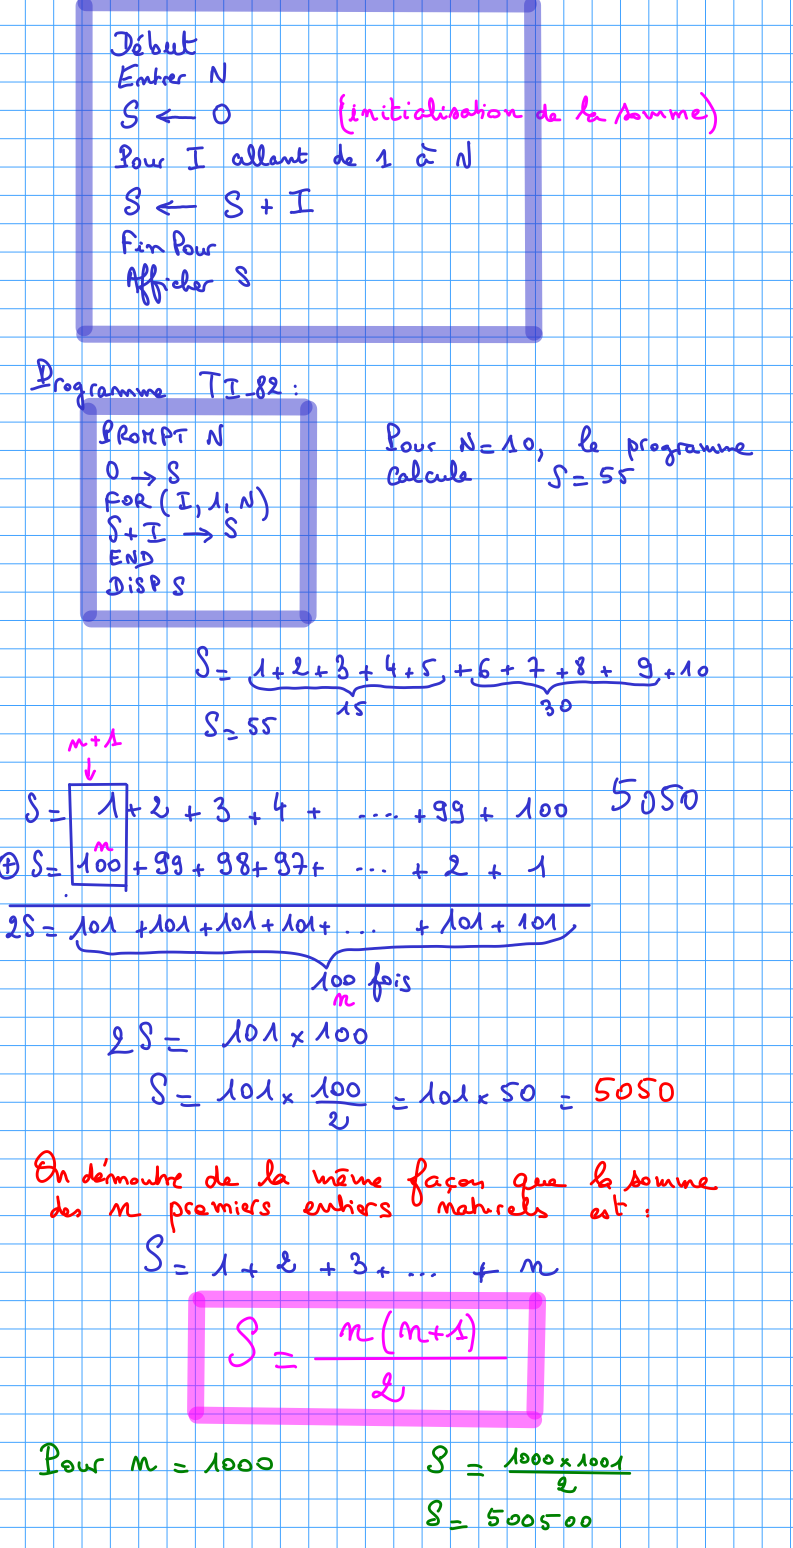 Début
Entrer N
S ← 0 (initialisation de la somme)
Pour I allant de 1 à N
S ← S + I
Fin Pour
Afficher S
Programme TI-82 :
PROMPT N
0 → S
FOR(I,1,N)
S+I → S
END
DISP S
Pour N=10, le programme
calcule S = 55
S = 1+2+3+4+5 +6+7+8+9+10
15 30
S = 55
n+1
↓
S = 1+2+3+4+ .... +99+100 5050
n
⊕ S = 100+99+98+97+ ... +2+1
2S = 101+101+101+101+ ... +101+101
100 fois
n
2S = 101×100
S = 101 × 100/2 = 101×50 = 5050
On démontre de la même façon que la somme
des n premiers entiers naturels est :
S = 1+2+3+ ... + n
S = n(n+1)/2
Pour n = 1000 S = 1000×1001/2
S = 500500